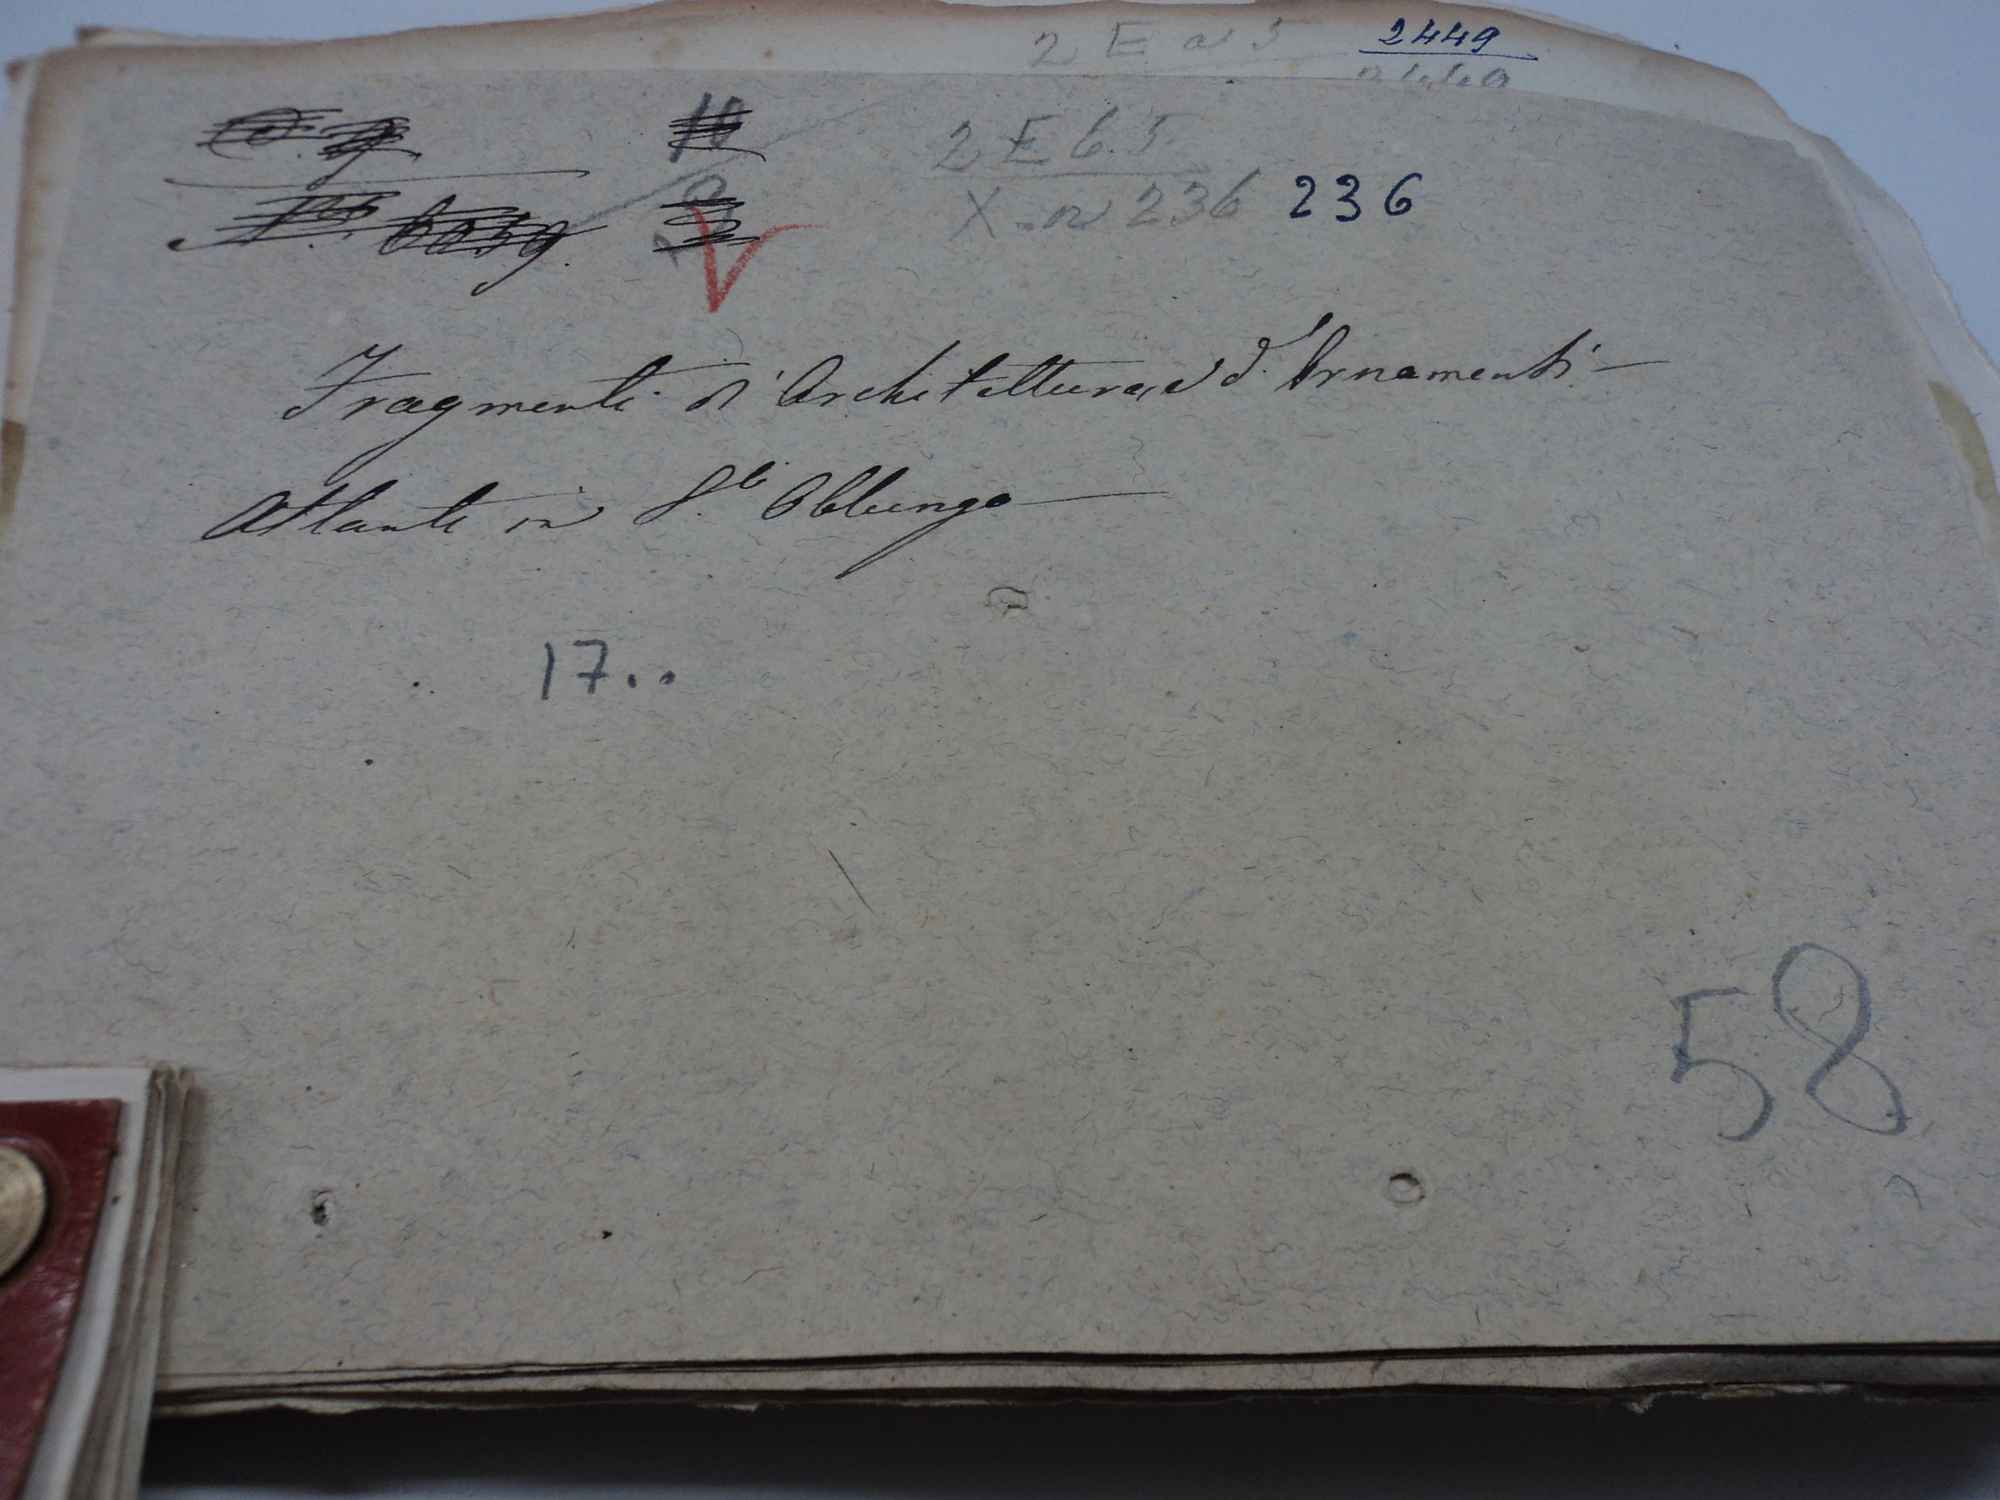 2 E a 5 2449
2449
2 E 6.5
X. n 236 236
Fragmenti d'Architettura, e d'Ornamenti
Atlante in f.º Oblungo
17..
58